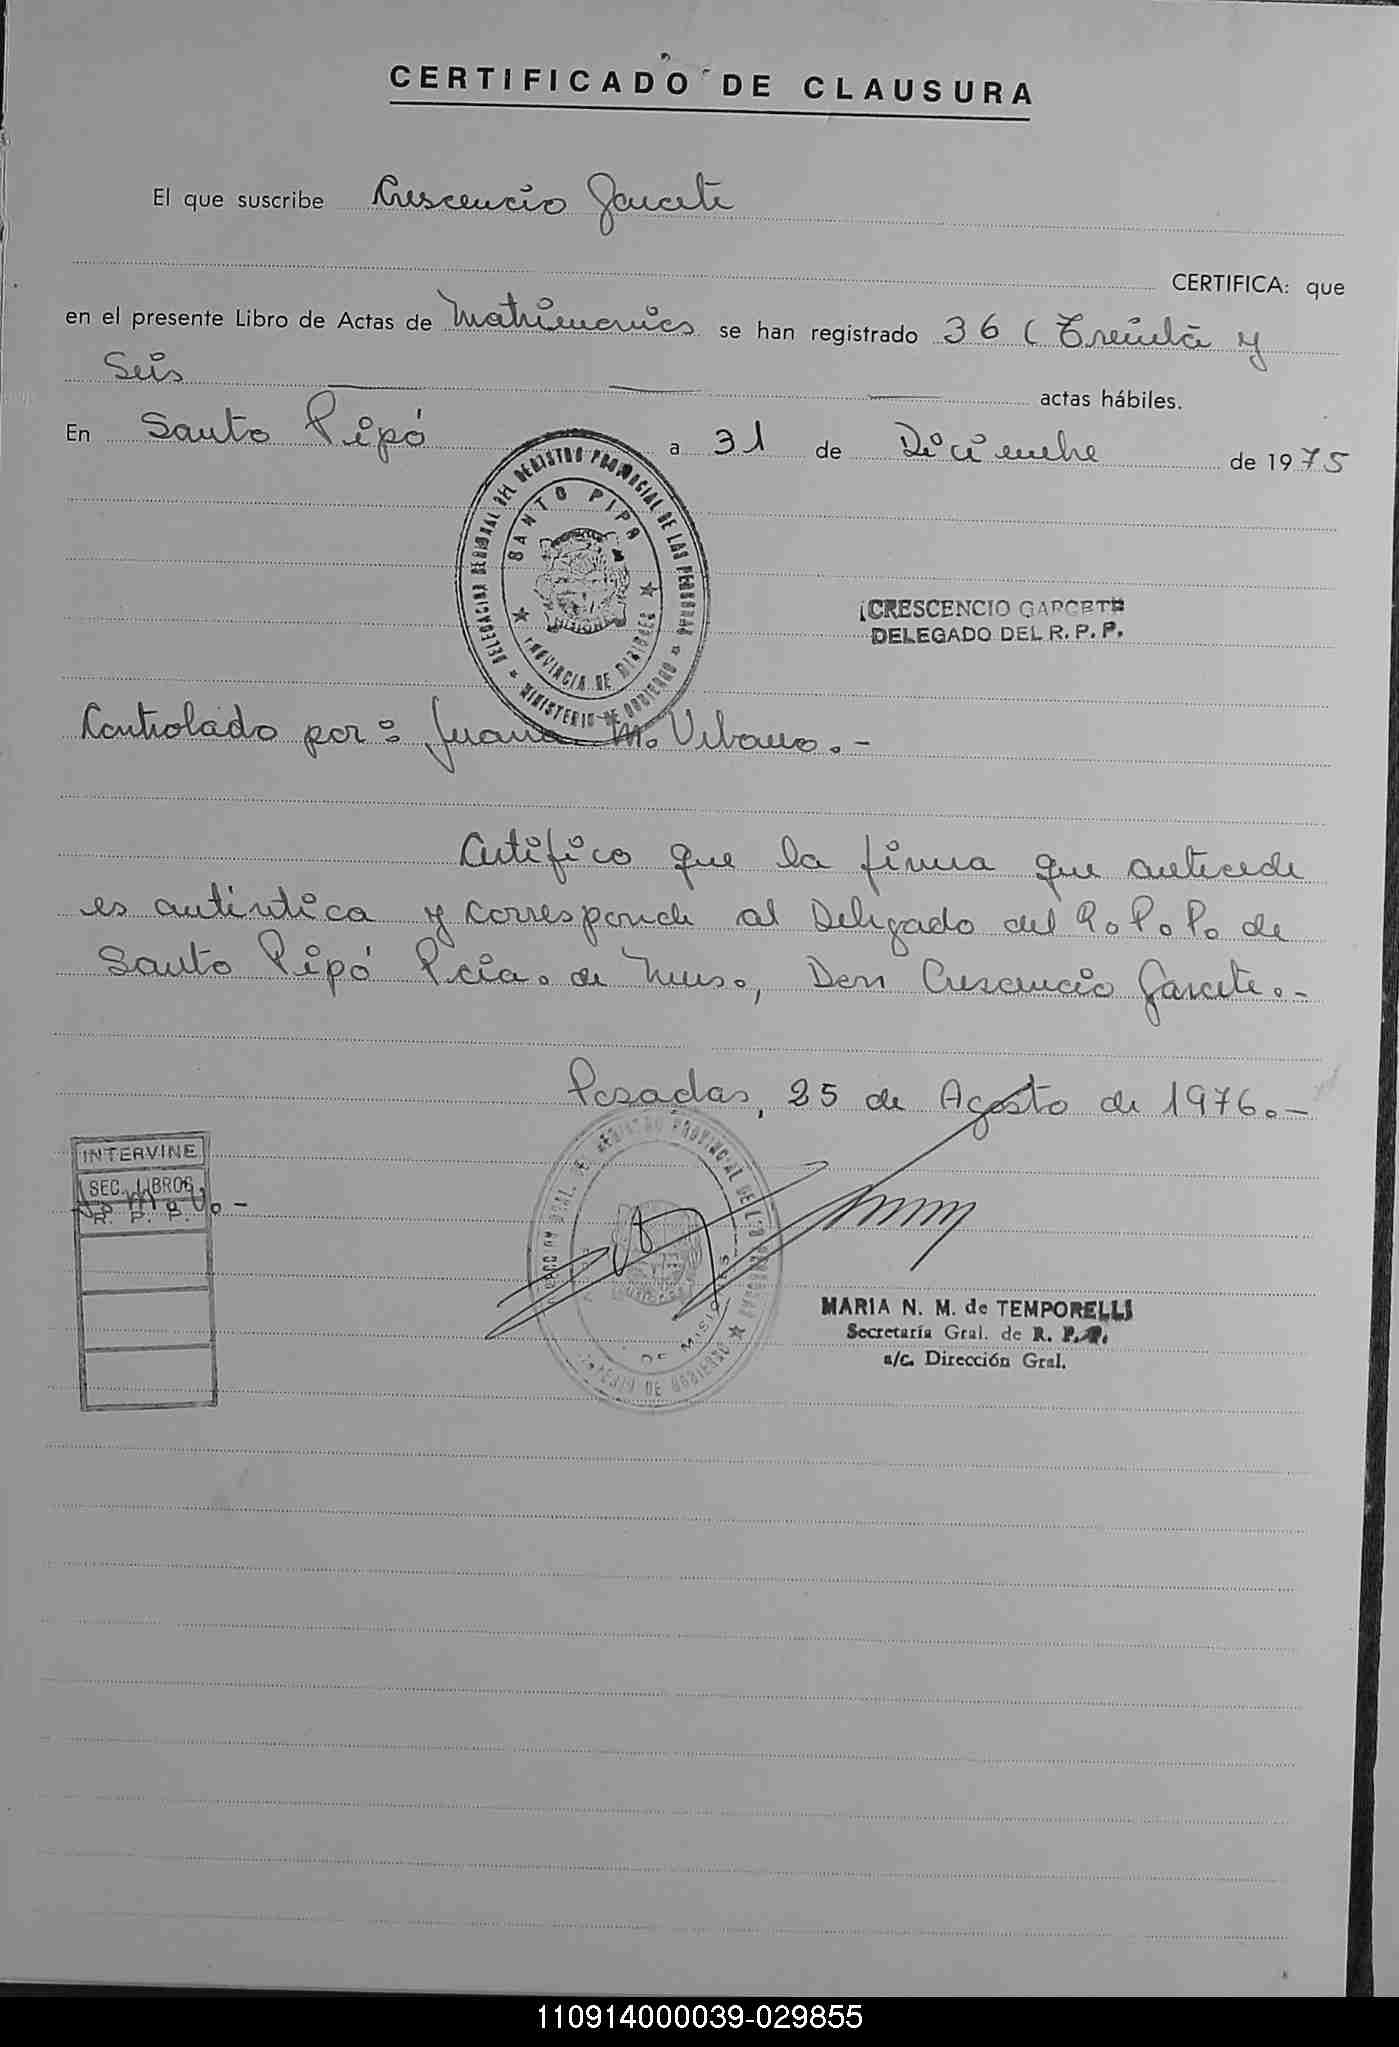 CERTIFICADO DE CLAUSURA
El que suscribe Crescencio Garcete
CERTIFICA: que
en el presente Libro de Actas de Matrimonios se han registrado 36 ( Treinta y
Seis actas hábiles.
En Santo Pipó a 31 de Diciembre de 1975
DELEGACION REGIONAL DEL REGISTRO PROVINCIAL DE LAS PERSONAS
SANTO PIPO
PROVINCIA DE MISIONES
MINISTERIO DE GOBIERNO
CRESCENCIO GARCETE
DELEGADO DEL R. P. P.
Controlado por: Juana M. Urbano.-
Certifico que la firma que antecede
es auténtica y corresponde al Delegado del R.P.P. de
Santo Pipó Pcia. de Mnes., Don Crescencio Garcete.-
Posadas, 25 de Agosto de 1976.-
INTERVINE
SEC. LIBROS
R. P. P.
REGISTRO PROVINCIAL DE LAS PERSONAS
DE MISIONES
MINISTERIO DE GOBIERNO
MARIA N. M. de TEMPORELLI
Secretaría Gral. de R. P. P.
a/c. Dirección Gral.
110914000039-029855